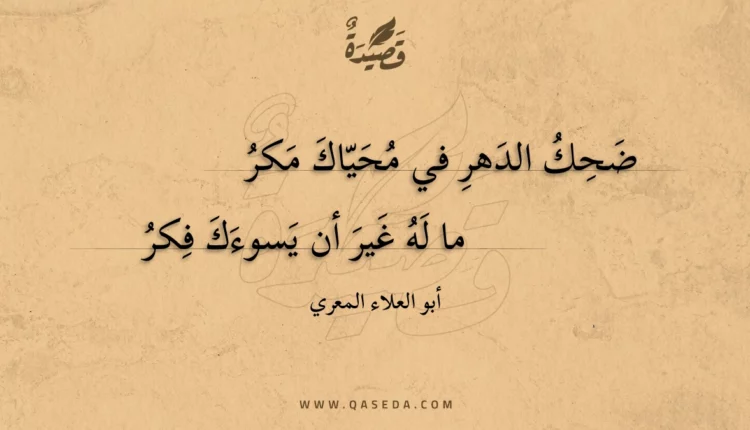 قَصِيدَةٌ
ضَحِكُ الدَهرِ في مُحَيّاكَ مَكرُ
ما لَهُ غَيرَ أن يَسوءَكَ فِكرُ
أبو العلاء المعري
WWW.QASEDA.COM